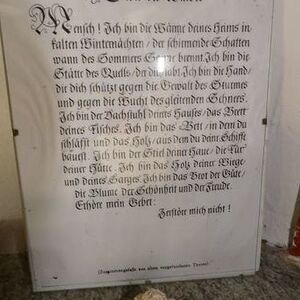 Mensch! Ich bin die Wärme deines Heims in
kalten Winternächten / der schirmende Schatten
wann des Sommers Sonne brennt. Ich bin die
Stätte des Quells / der dich labt. Ich bin die Hand /
die dich schützt gegen die Gewalt des Sturmes
und gegen die Wucht des gleitenden Schnees.
Ich bin der Dachstuhl deines Hauses / das Brett
deines Tisches. Ich bin das Bett / in dem du
schläfst und das Holz / aus dem du deine Schiffe
baust. Ich bin der Stiel deiner Haue / die Tür
deiner Hütte. Ich bin das Holz deiner Wiege
und deines Sarges. Ich bin das Brot der Güte /
die Blume der Schönheit und der Freude.
Erhöre mein Gebet:
Zerstöre mich nicht!